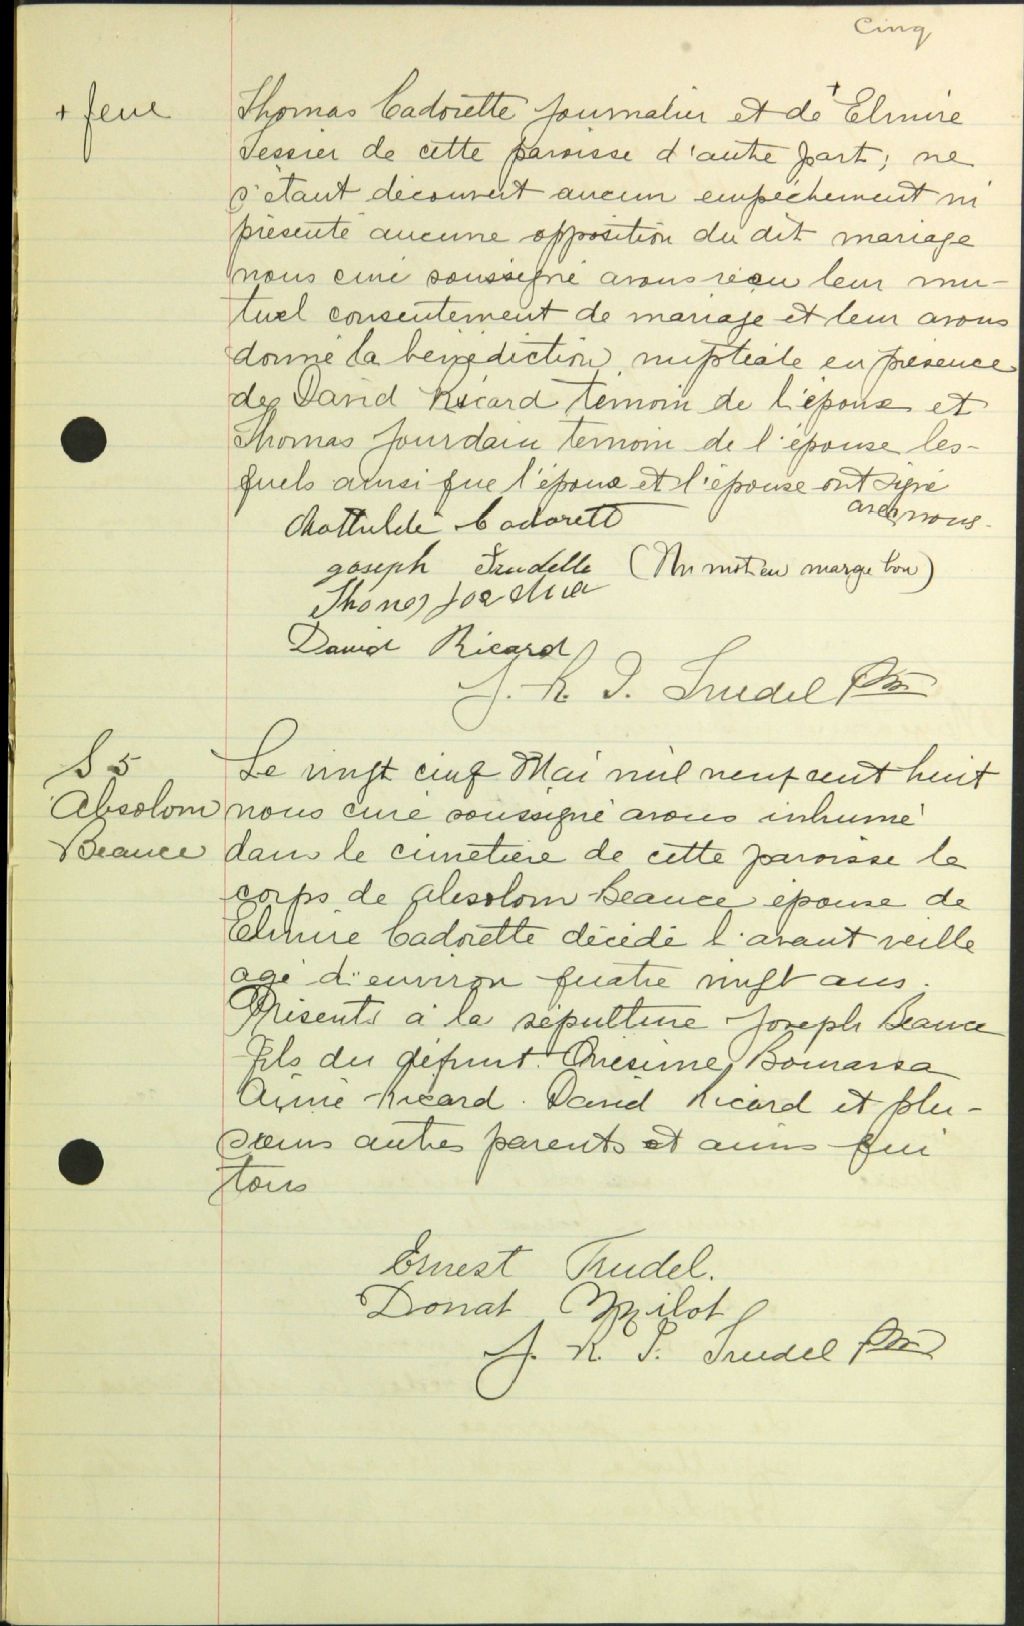 Cinq
+ feue
Thomas Cadorette journalier et de + Elmire
Tessier de cette paroisse d'autre part; ne
s'étant découvert aucun empêchement ni
présenté aucune opposition du dit mariage
nous curé soussigné avons reçu leur mu-
tuel consentement de mariage et leur avons
donné la bénédiction nuptiale en présence
de David Ricard témoin de l'époux et
Thomas Jourdain témoin de l'épouse les-
quels ainsi que l'époux et l'épouse ont signé
avec nous.
Mathilde Cadorett
joseph Trudelle (Un mot en marge bon)
Thomas
David Ricard
J. H. P. Trudel Ptre
S 5
Absolom
Beauce
Le vingt cinq Mai mil neuf cent huit
nous curé soussigné avons inhumé
dans le cimetière de cette paroisse le
corps de Absolom Beauce épouse de
Elmire Cadorette décédé l'avant veille
agé d'environ quatre vingt ans.
Présents à la sépulture Joseph Beauce
fils du défunt. Onésime Bourassa
Aimé Ricard. David Ricard et plu-
sieurs autres parents et amis qui
tous
Ernest Trudel.
Donat Milot
J. H. P. Trudel Ptre